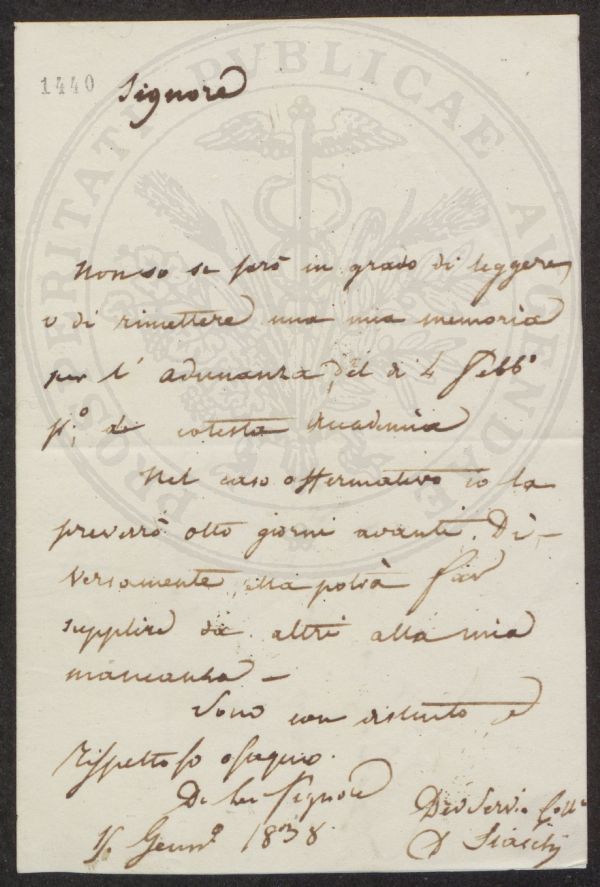 1440
Signore
Non so se sarò in grado di leggere,
o di rimettere una mia memoria
per l'adunanza del dì 4 Febb.o
p.o di cotesta Accademia
Nel caso affermativo io la
prevarrò otto giorni avanti. Di-
versamente ella potrà far
supplire da altri alla mia
mancanza -
Sono con distinto e
rispettoso ossequio.
Di lei Signore
Genn.o 1838.
Dev Serv.
PROSPERITATI PVBLICAE AVGENDAE